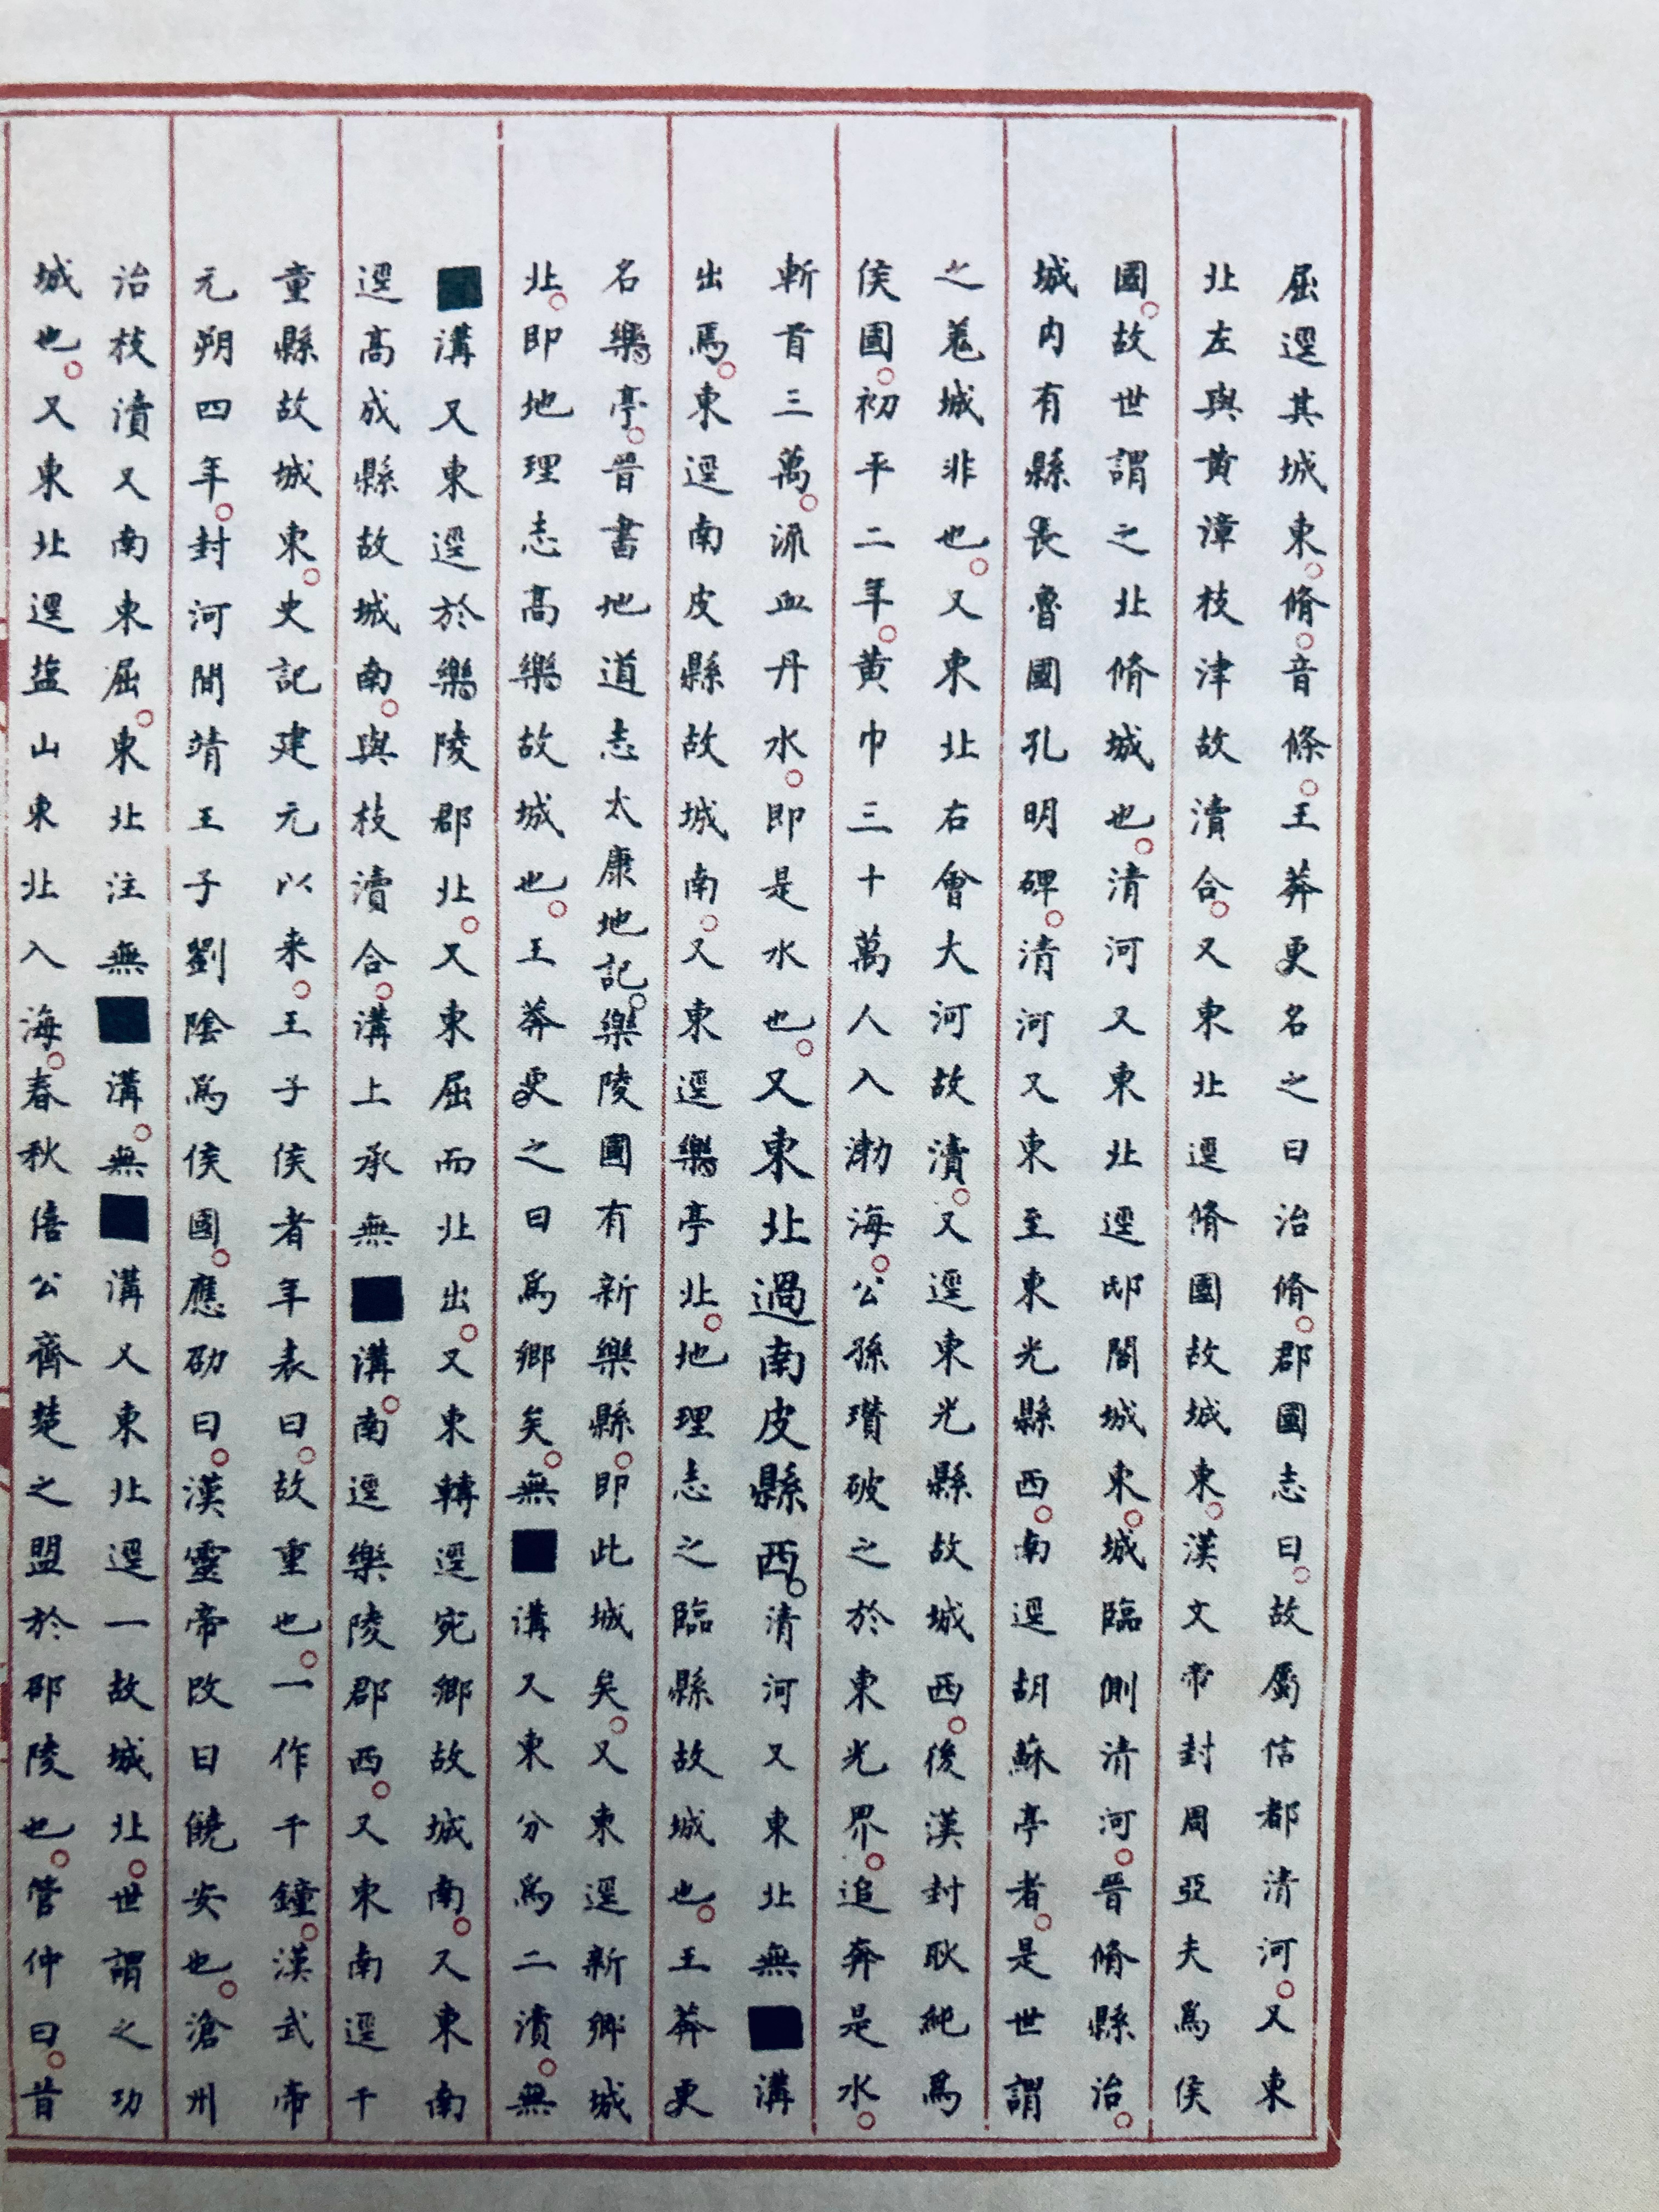 屈逕其城東脩音條王莽更名之曰治脩郡國志曰故屬信都清河又東
北左與黄漳枝津故瀆合又東北逕脩國故城東漢文帝封周亞夫為侯
國故世謂之北脩城也清河又東北逕邸閣城東城臨側清河晉脩縣治
城内有縣長魯國孔明碑清河又東至東光縣西南逕胡蘇亭者是世謂
之羗城非也又東北右會大河故瀆又逕東光縣故城西後漢封耿純為
侯國初平二年黄巾三十萬人入渤海公孫瓚破之於東光界追奔是水
斬首三萬流血丹水即是水也又東北過南皮縣西清河又東北無■溝
出焉東逕南皮縣故城南又東逕樂亭北地理志之臨縣故城也王莽更
名樂亭晉書地道志太康地記樂陵國有新樂縣即此城矣又東逕新鄉城
北即地理志高樂故城也王莽更之曰為鄉矣無■溝又東分為二瀆無
■溝又東逕於樂陵郡北又東屈而北出又東轉逕宛鄉故城南又東南
逕高成縣故城南與枝瀆合溝上承無■溝南逕樂陵郡西又東南逕千
童縣故城東史記建元以来王子侯者年表曰故重也一作千鐘漢武帝
元朔四年封河間靖王子劉陰為侯國應劭曰漢靈帝改曰饒安也滄州
治枝瀆又南東屈東北注無■溝無■溝又東北逕一故城北世謂之功
城也又東北逕盐山東北入海春秋僖公齊楚之盟於邵陵也管仲曰昔